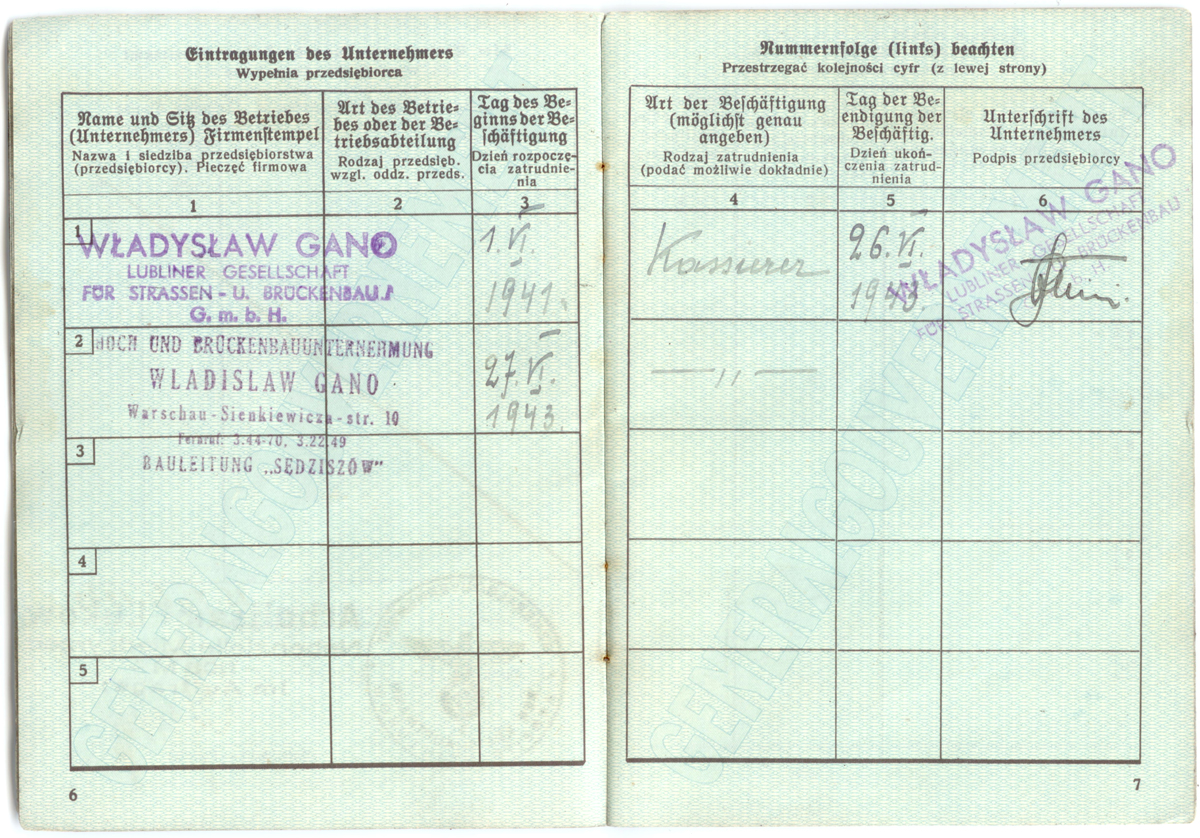 Eintragungen des Unternehmers
Wypełnia przedsiębiorca
Name und Sitz des Betriebes
(Unternehmers) Firmenstempel
Nazwa i siedziba przedsiębiorstwa
(przedsiębiorcy). Pieczęć firmowa
Art des Betrie-
bes oder der Be-
triebsabteilung
Rodzaj przedsięb.
wzgl. oddz. przeds.
Tag des Be-
ginns der Be-
schäftigung
Dzień rozpoczę-
cia zatrudnie-
nia
1
2
3
1
WŁADYSŁAW GANO
LUBLINER GESELLSCHAFT
FÜR STRASSEN - U. BRÜCKENBAU
G. m. b. H.
1. VI.
1941.
2
HOCH UND BRÜCKENBAUUNTERNERMUNG
WLADISLAW GANO
Warschau - Sienkiewicza - str. 10
Fernruf: 3.44-70, 3.22.49
BAULEITUNG „SĘDZISZÓW"
27. VI.
1943.
3
4
5
6
Nummernfolge (links) beachten
Przestrzegać kolejności cyfr (z lewej strony)
Art der Beschäftigung
(möglichst genau
angeben)
Rodzaj zatrudnienia
(podać możliwie dokładnie)
Tag der Be-
endigung der
Beschäftig.
Dzień ukoń-
czenia zatrud-
nienia
Unterschrift des
Unternehmers
Podpis przedsiębiorcy
4
5
6
Kassierer
26. VI.
1943.
WŁADYSŁAW GANO
LUBLINER GESELLSCHAFT
FÜR STRASSEN - U. BRÜCKENBAU
G. m. b. H.
— „ —
7
GENERALGOUVERNEMENT
GENERALGOUVERNEMENT